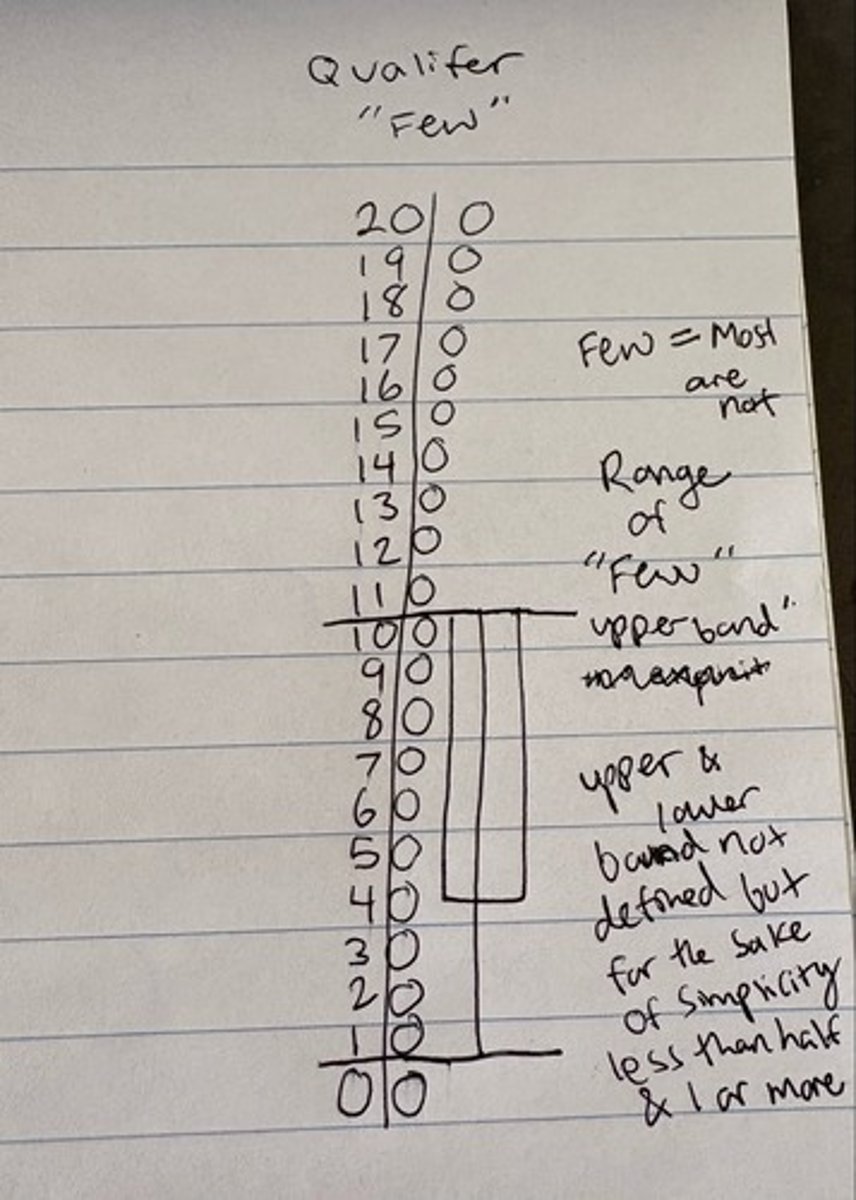 Qualifer
"Few"
20 0
19 0
18 0
17 0
16 0
15 0
14 0
13 0
12 0
11 0
10 0
9 0
8 0
7 0
6 0
5 0
4 0
3 0
2 0
1 0
0 0
Few = Most
are
not
Range
of
"Few"
upper band"
upper &
lower
bound not
defined but
for the sake
of simplicity
less than half
& 1 or more